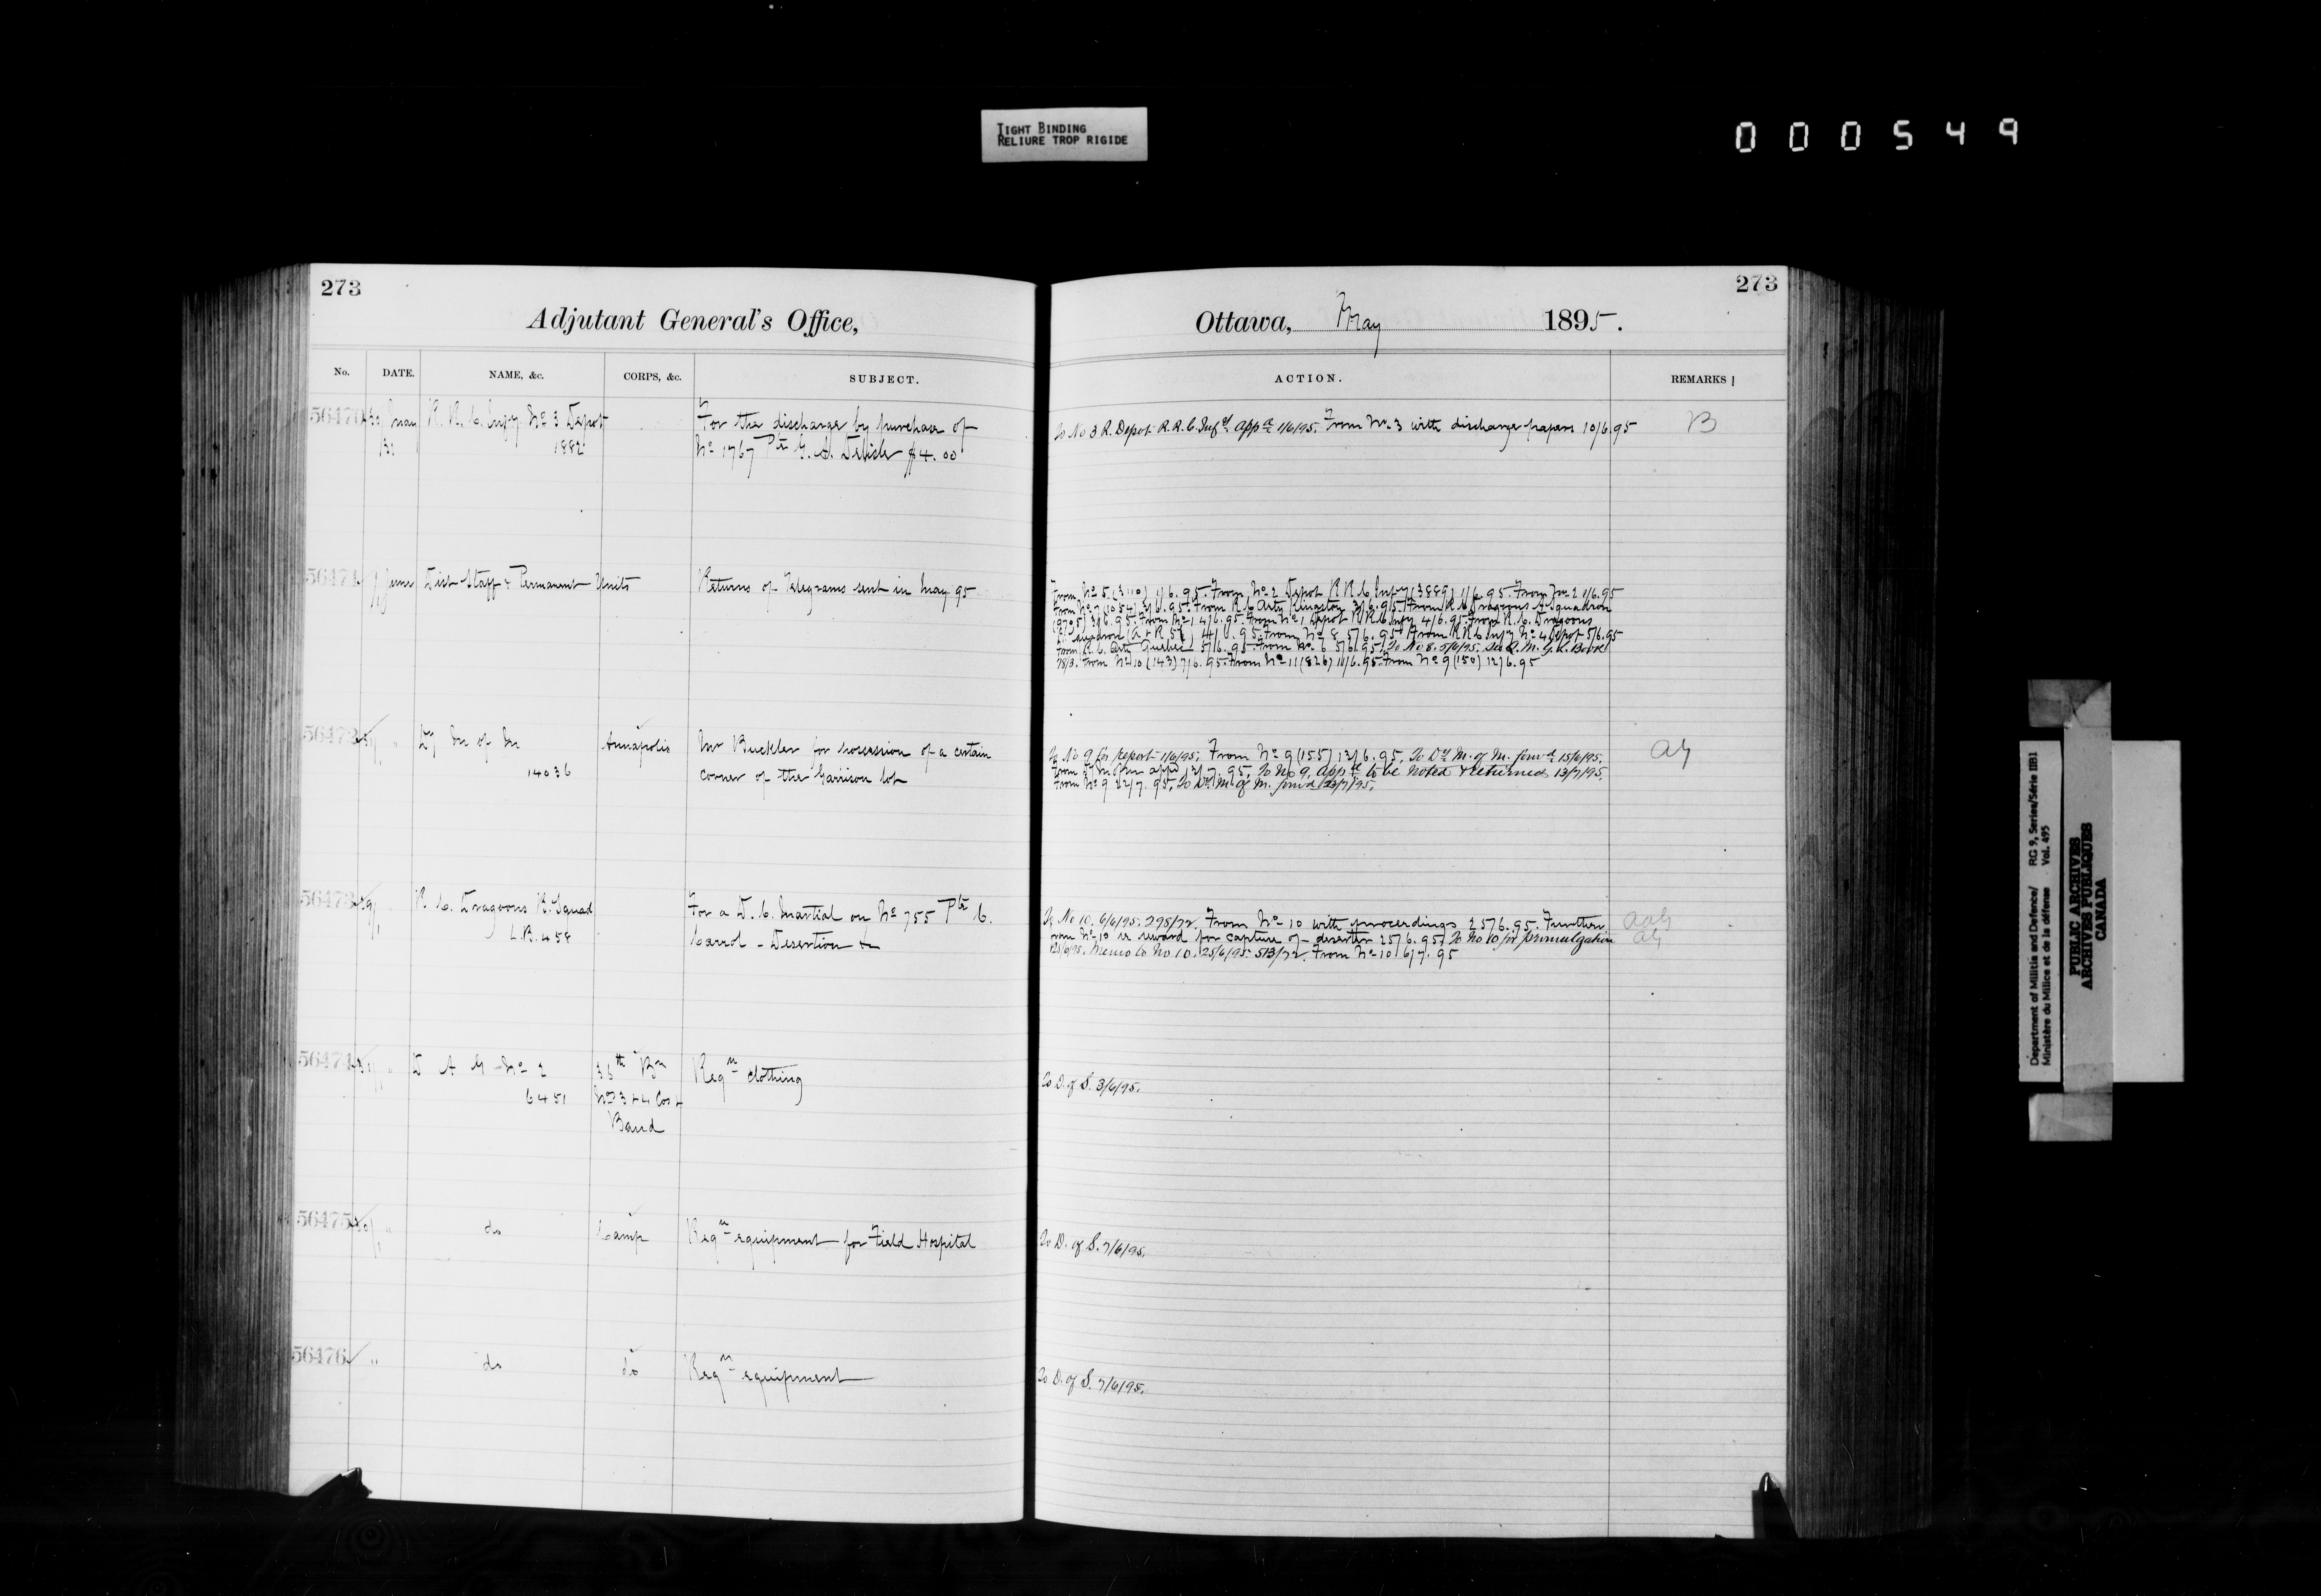 TIGHT BINDING
RELIURE TROP RIGIDE
000549
273
Adjutant General's Office,
No. DATE. NAME, &c. CORPS, &c. SUBJECT.
56470 30 May R. R. C. Infy No 3 Depot For the discharge by purchase of
31 1882 No 1767 Pte G. A. $4.00
56471 1 June Dist Staff & Permanent Units Returns of Telegrams sent in May 95
56472 31 " Dy M of M Annapolis Mr Buckler for possession of a certain
14036 corner of the Garrison lot
56473 29 " R. C. Dragoons R. Squad For a D. C. Martial on No 755 Pte C.
L.B. 458 Carrol - Desertion &c
56474 31 " D A G No 2 Reqn clothing
6451 Nos 3 & 4 Cos &
Band
56475 30 " do Camp Reqn equipment for Field Hospital
56476 " do do Reqn equipment
273
Ottawa, May 1895.
ACTION. REMARKS
To No 3 R. Depot R.R.C. Infy appd 1/6/95. From No 3 with discharge papers 10/6.95 B
From No 5 (3110) 1/6.95. From No 2 Depot R R C Infy (3889) 1/6.95. From No 2 1/6.95
From No 7 (1054) 3/6.95. From R C Arty Kingston 3/6.95. From R C Dragoons A Squadron
3/6.95. From No 1 4/6.95. From No 1 Depot R R C Infy 4/6.95. From R. C. Dragoons
4/6.95. From No 8 5/6.95. From R R C Infy No 4 Depot 5/6.95
From R. C. Arty Quebec 5/6.95. From No 6 5/6.95. To No 8. 5/6/95. See Q. M. G. R. Book
78/3. From No 10 (143) 7/6.95. From No 11 (826) 10/6.95. From No 9 (150) 12/6.95
To No 9 for report 1/6/95. From No 9 (155) 13/6.95. To Dy M. of M. forwd 15/6/95. AG
From Dy M of M appd 13/7.95. To No 9, appd to be noted & returned 13/7/95.
From No 9 22/7.95. To Dy M. of M. forwd 23/7/95.
To No 10. 6/6/95. 298/72. From No 10 with proceedings 25/6.95. Further AAG
from No 10 re reward for capture of deserter 25/6.95. To No 10 for promulgation AG
25/6/95. Memo to No 10. 25/6/95. 513/72. From No 10 6/7.95
To D. of S. 3/6/95.
To D. of S. 7/6/95.
To D. of S. 7/6/95.
Department of Militia and Defence/ RG 9, Series/Série IIB1
Ministère du Milice et de la défense Vol. 495
PUBLIC ARCHIVES
ARCHIVES PUBLIQUES
CANADA